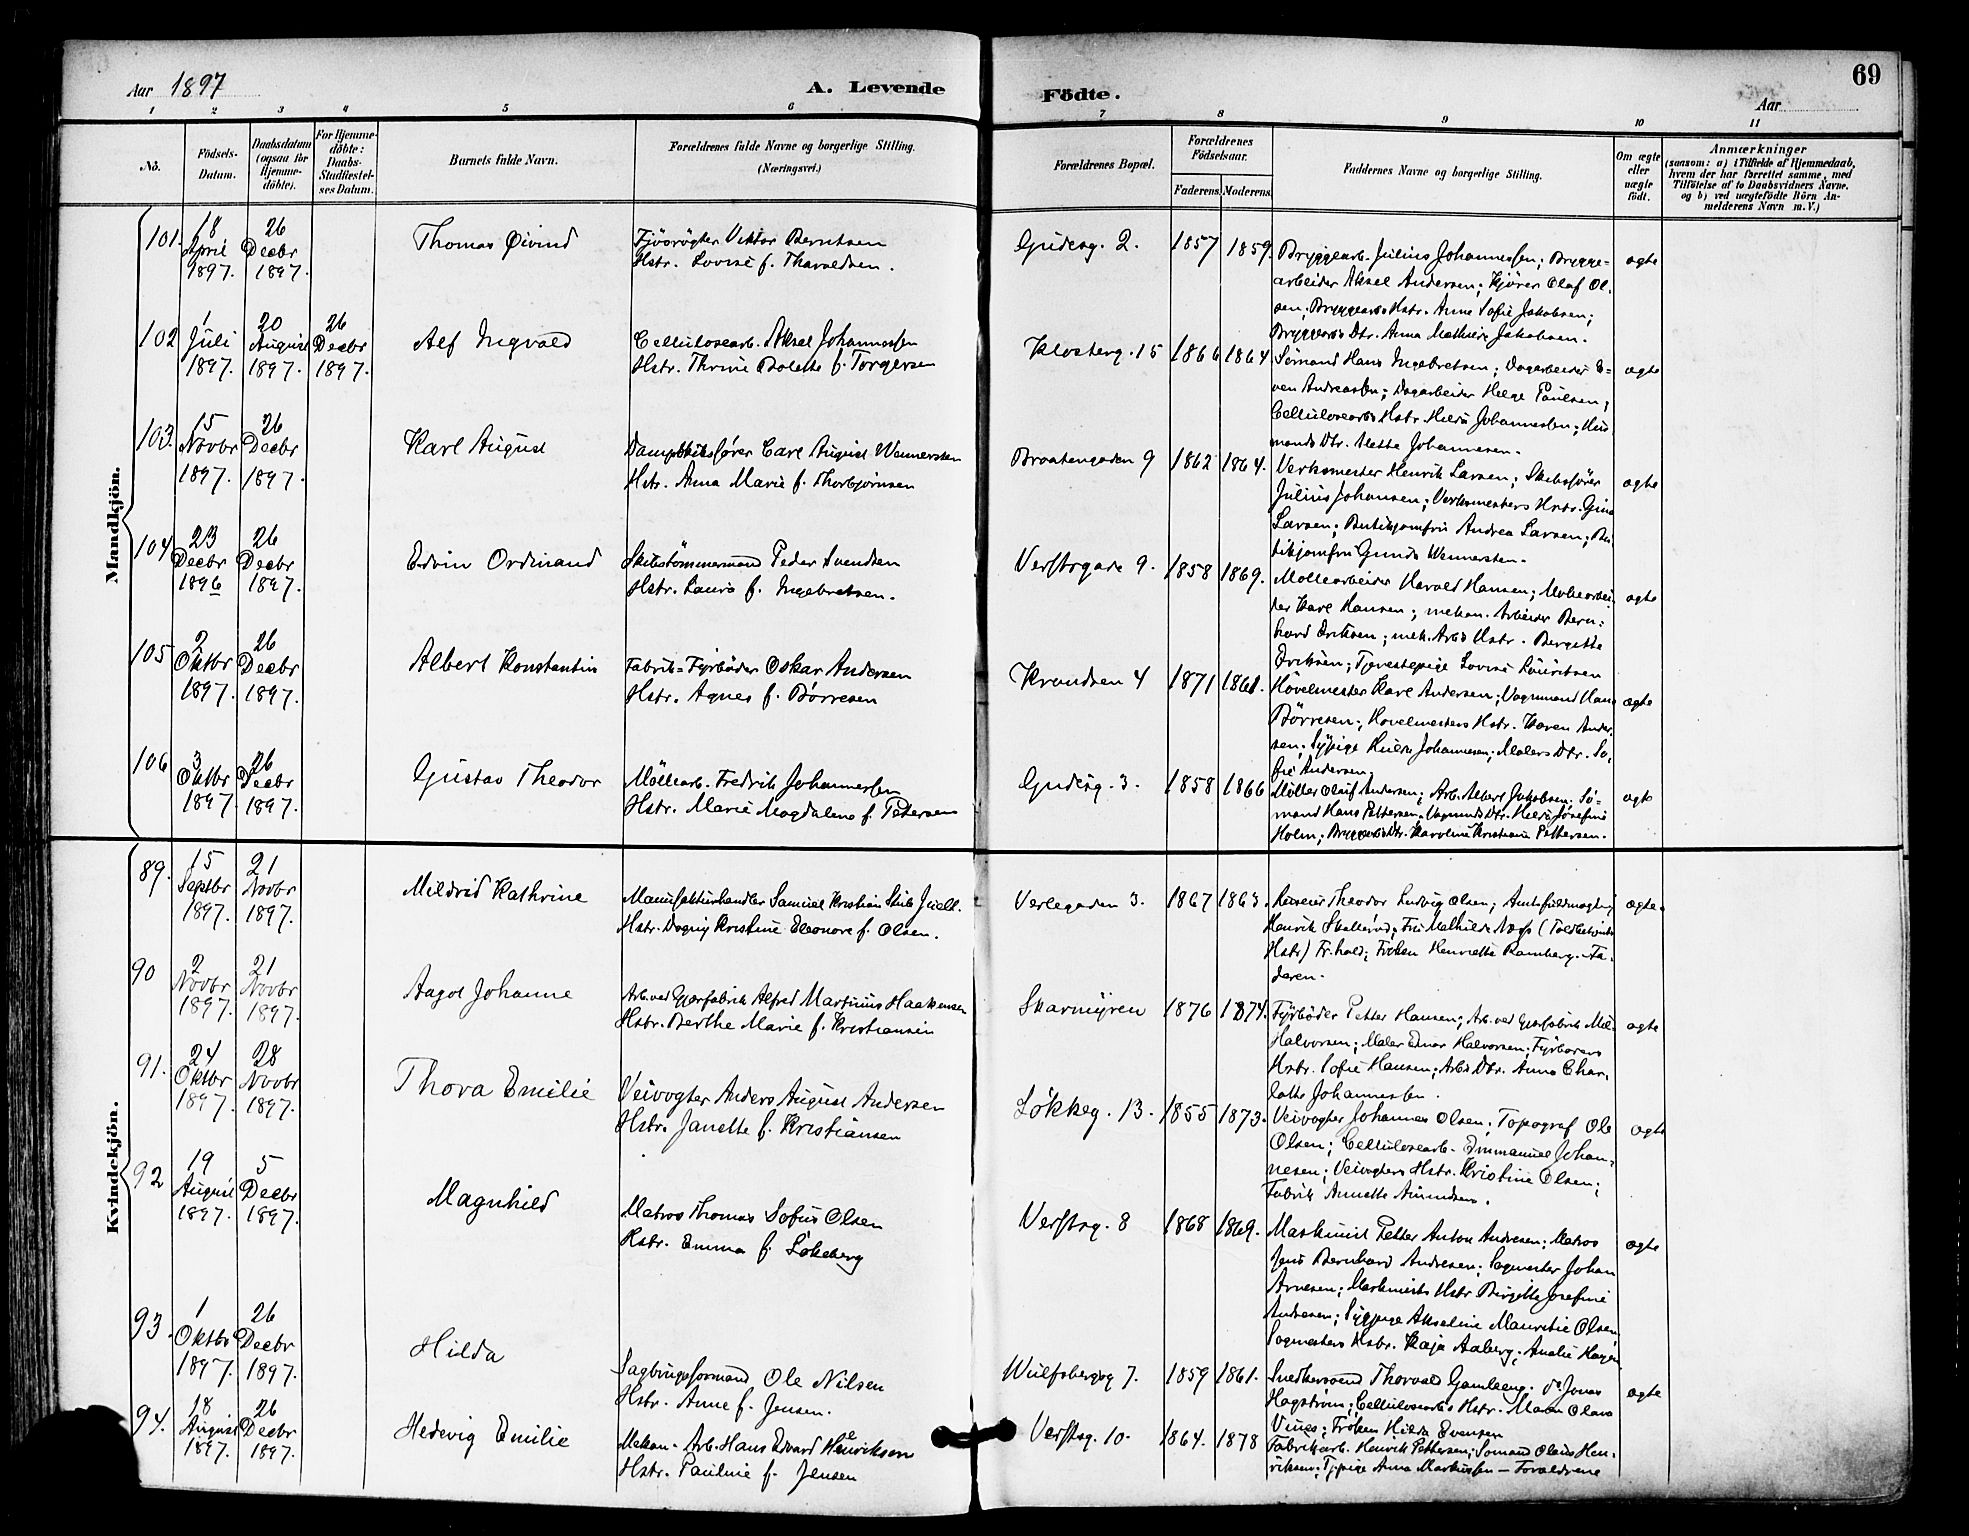 69
Aar 1897
A. Levende
Födte.
Aar
1 2 3 4 5 6
7 8 9 10 11
No.
Födsels-Datum.
Daabsdatum (ogsaa för Hjemme-döbte).
For Hjemme-döbte: Daabs-Stadfæstel-ses Datum.
Barnets fulde Navn.
Forældrenes fulde Navne og borgerlige Stilling. (Næringsvei.)
Forældrenes Bopæl.
Forældrenes Födselsaar.
Faderens. Moderens.
Faddernes Navne og borgerlige Stilling.
Om ægte eller uægte födt.
Anmærkninger
(saasom: a) i Tilfælde af Hjemmedaab, hvem der har forrettet samme, med Tilföielse af to Daabsvidners Navne, og b) ved uægtefödte Börn Anmelderens Navn m. V.)
Mandkjön.
101. 18 April 1897. 26 Decbr 1897.
Thomas Øivind
Fjøsrøgter Viktor Berntsen
Hstr. Lovise f. Tharaldsen.
Gudesg. 2. 1857 1859.
Bryggearb. Julius Johannessen; Brygge=
arbeider Aksel Andersen; Kjører Olaf Ol-
sen; Bryggearbs Hstr. Anne Sofie Jakobsen;
Bryggearbs Dtr. Anna Mathilde Jakobsen.
ægte
102 1 Juli 1897. 20 August 1897. 26 Decbr 1897.
Alf Ingvald
Cellulosearb. Aksel Johannessen
Hstr. Thrine Bolette f. Torgersen
Klosterg. 15 1866 1864.
Sømand Hans Ingebretsen; Dagarbeider E=
ven Andreassen; Dagarbeider Helge Paulsen;
Cellulosearbs Hstr. Hilda Johannessen; Hus-
mands Dtr. Alette Johannesen.
ægte
103. 15 Novbr 1897. 26 Decbr 1897.
Karl August
Dampskibsfører Carl August Wennersten
Hstr. Anna Marie f. Thorbjørnsen
Braatengaden 9 1862 1864.
Verksmester Henrik Larsen; Skibsfører
Julius Johansen; Verksmesters Hstr. Gina
Larsen; Butikjomfru Andrea Larsen; Bu-
tikjomfru Gunda Wennersten.
ægte
104 23 Decbr 1896 26 Decbr 1897.
Edvin Ordinand
Skibstømmermand Peder Svendsen
Hstr. Laura f. Ingebretsen.
Verftsgade 9. 1858 1869.
Møllearbeider Harald Hansen; Møllearbei-
der Karl Hansen; mekan. Arbeider Bern-
hard Eriksen; mek. Arbs Hstr. Bergitte
Eriksen; Tjenestepige Lovise Lauritsen
ægte
105 2 Oktbr 1897. 26 Decbr 1897.
Albert Konstantin
Fabrik=Fyrbøder Oskar Andersen
Hstr. Agnes f. Børresen
Strandsen 4 1871 1861.
Høvelmester Karl Andersen; Vognmand Hans
Børresen; Høvelmesters Hstr. Karen Ander-
sen; Sypige Hulda Johannesen; Malers Dtr. So-
fie Andersen.
ægte
106 3 Oktbr 1897 26 Decbr 1897.
Gustav Theodor
Møllearb. Fredrik Johannessen
Hstr. Marie Magdalena f. Petersen
Gudesg. 3. 1858 1866
Møller Olaf Andersen; Arb. Albert Jakobsen; Sø-
mand Hans Pettersen; Vognmds Dtr. Hilda Josefine
Holm; Bryggearbs Dtr. Karoline Kristiane Pettersen.
ægte
Kvindekjön.
89. 15 Septbr 1897. 21 Novbr 1897.
Mildrid Kathrine
Manufakturhandler Samuel Kristian Skib Juell.
Hstr. Dagny Kristine Eleonore f. Olsen.
Verlegaden 3. 1867 1863.
Theodor Ludvig Olsen; Amtsfuldmægtig
Henrik Skallerud; Fru Mathilde Næss (Toldbetjents
Hstr) Fr. hold; Frøken Henriette Ramberg. Fa-
deren.
ægte.
90 2 Novbr 1897. 21 Novbr 1897.
Aagot Johanne
Arb. ved Gjærfabrik Alfred Martinius Haakensen
Hstr. Berthe Marie f. Kristiansen
Skarmyren 1876 1874.
Fyrbøder Petter Hansen; Arb. ved Gjærfabrik Mil-
Halvorsen; Maler Einar Halvorsen; Fyrbøders
Hstr. Sofie Hansen; Arbs Dtr. Anna Char-
lotte Johannessen.
ægte
91. 24 Oktbr 1897. 28 Novbr 1897.
Thora Emilie
Veivogter Anders August Andersen
Hstr. Janette f. Kristiansen
Løkkeg. 13. 1855 1873.
Veivogter Johannes Olsen; Topograf Ole
Olsen; Cellulosearb. Emmanuel Johan-
nesen; Veivogters Hstr. Kristine Olsen;
Fabrik Annette Amundsen.
ægte
92 19 August 1897. 5 Decbr 1897.
Magnhild
Matros Thomas Sofus Olsen
Hstr. Emma f. Løkeberg
Verftsg. 8 1868 1869.
Maskinist Petter Anton Andresen; Matros
Jens Bernhard Andresen; Sagmester Johan
Arnesen; Maskinists Hstr. Birgitte Josefine
Andresen; Sypige Akseline Mauritie Olsen;
Sagmesters Hstr. Kaja Aaberg; Amalie Hagen
ægte
93. 1 Oktbr 1897. 26 Decbr 1897.
Hilda
Sagbrugsformand Ole Nilsen
Hstr. Anne f. Jensen.
Wulfsbergsg 7. 1859 1861.
Snedkersvend Thorvald Gamberg. do Jonas
Hagstrøm; Cellulosearbs Hstr. Maren Olava
Vines; Frøken Hilda Evensen
ægte
94. 18 August 1897. 26 Decbr 1897.
Hedevig Emilie
Mekan. Arb. Hans Edvard Henriksen
Hstr. Pauline f. Jensen
Verftsg. 10. 1864. 1878
Fabrikarb. Henrik Pettersen; Sømand Olaus Hen-
riksen; Tjpige Anna Markussen — Forældrene